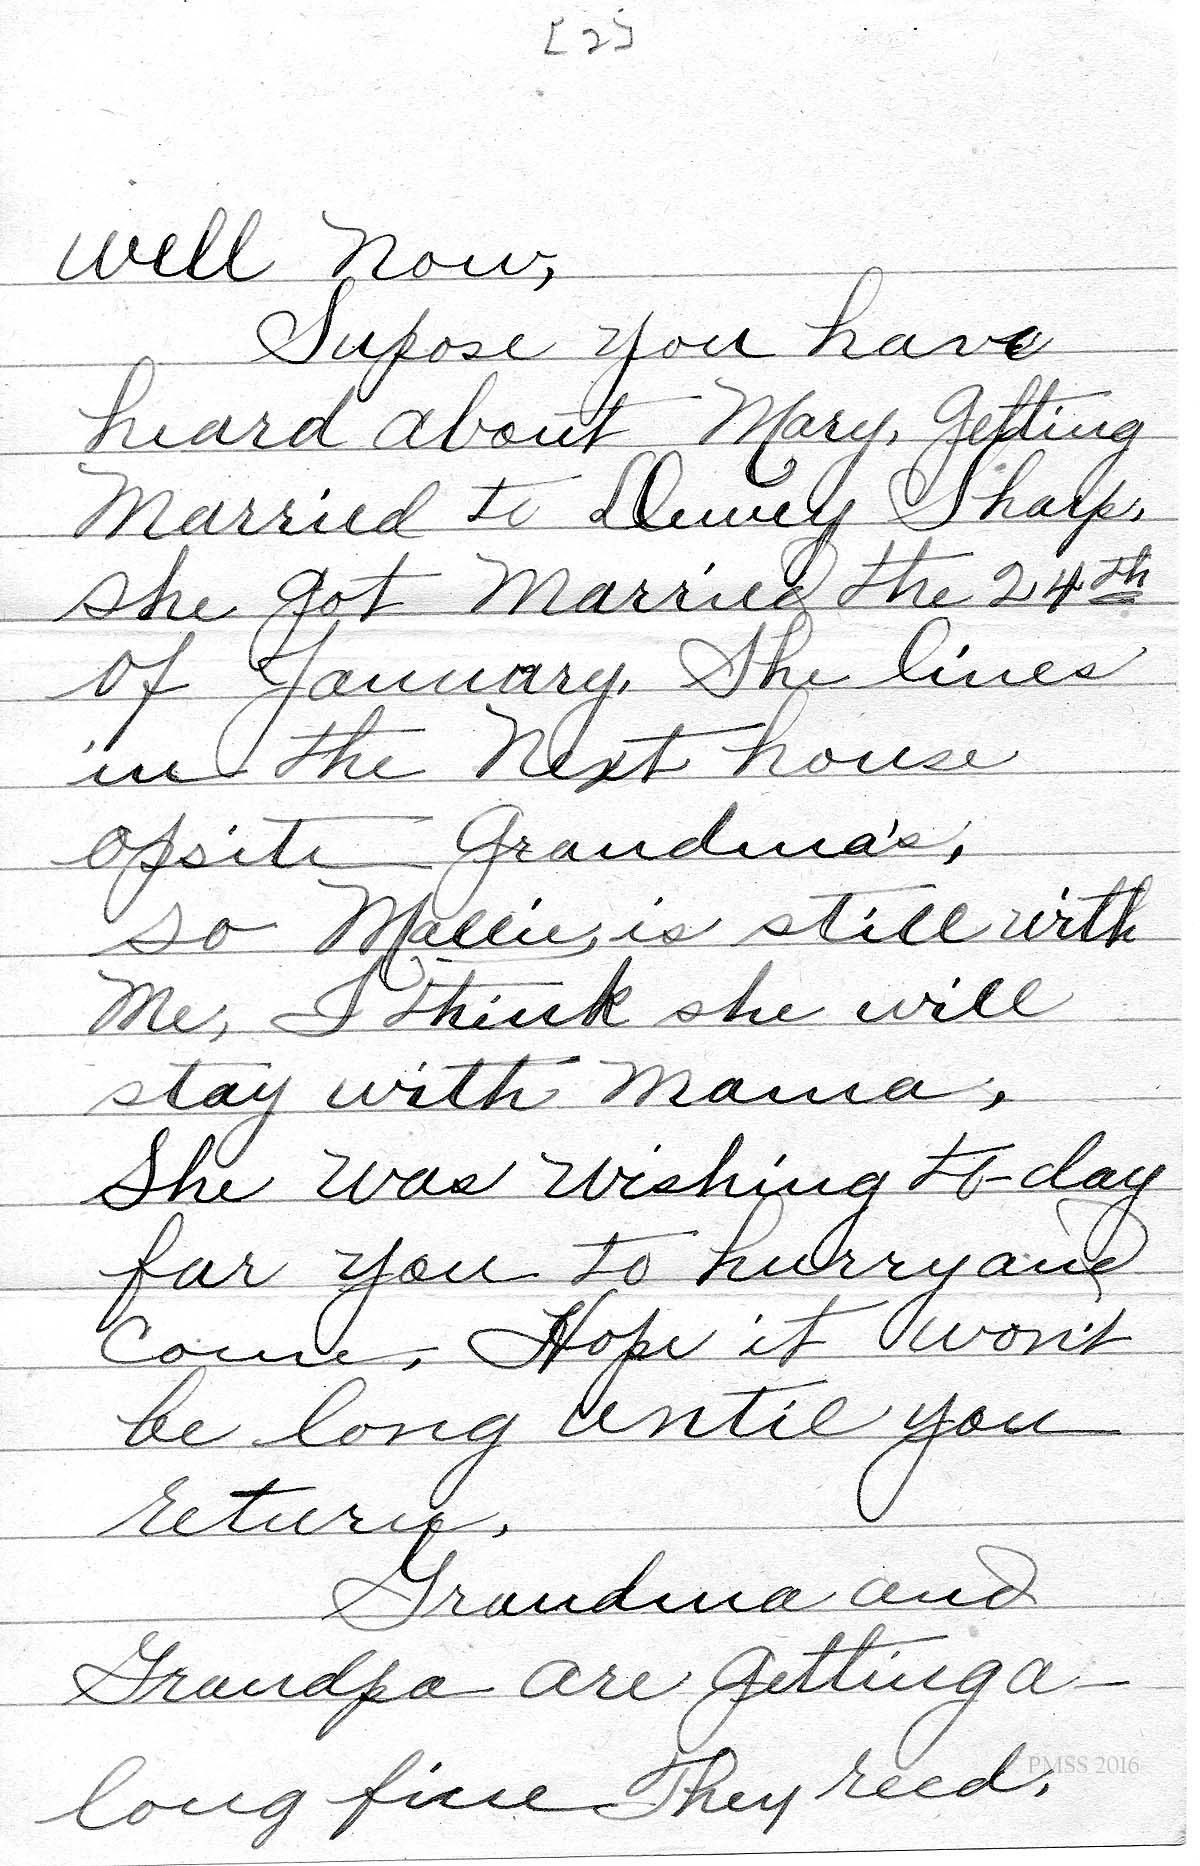 [2]
Well Now,
Supose you have
heard about Mary, Getting
Married to Dewey Sharp,
she got Married the 24th
of January. She lives
in the Next house
opsite Grandma's,
so Mallie, is still with
Me, I think she will
stay with Mama,
She was wishing to-day
for you to hurry and
Come, Hope it won't
be long until you
return.
Grandma and
Grandpa are getting a-
long fine They recd.
PMSS 2016